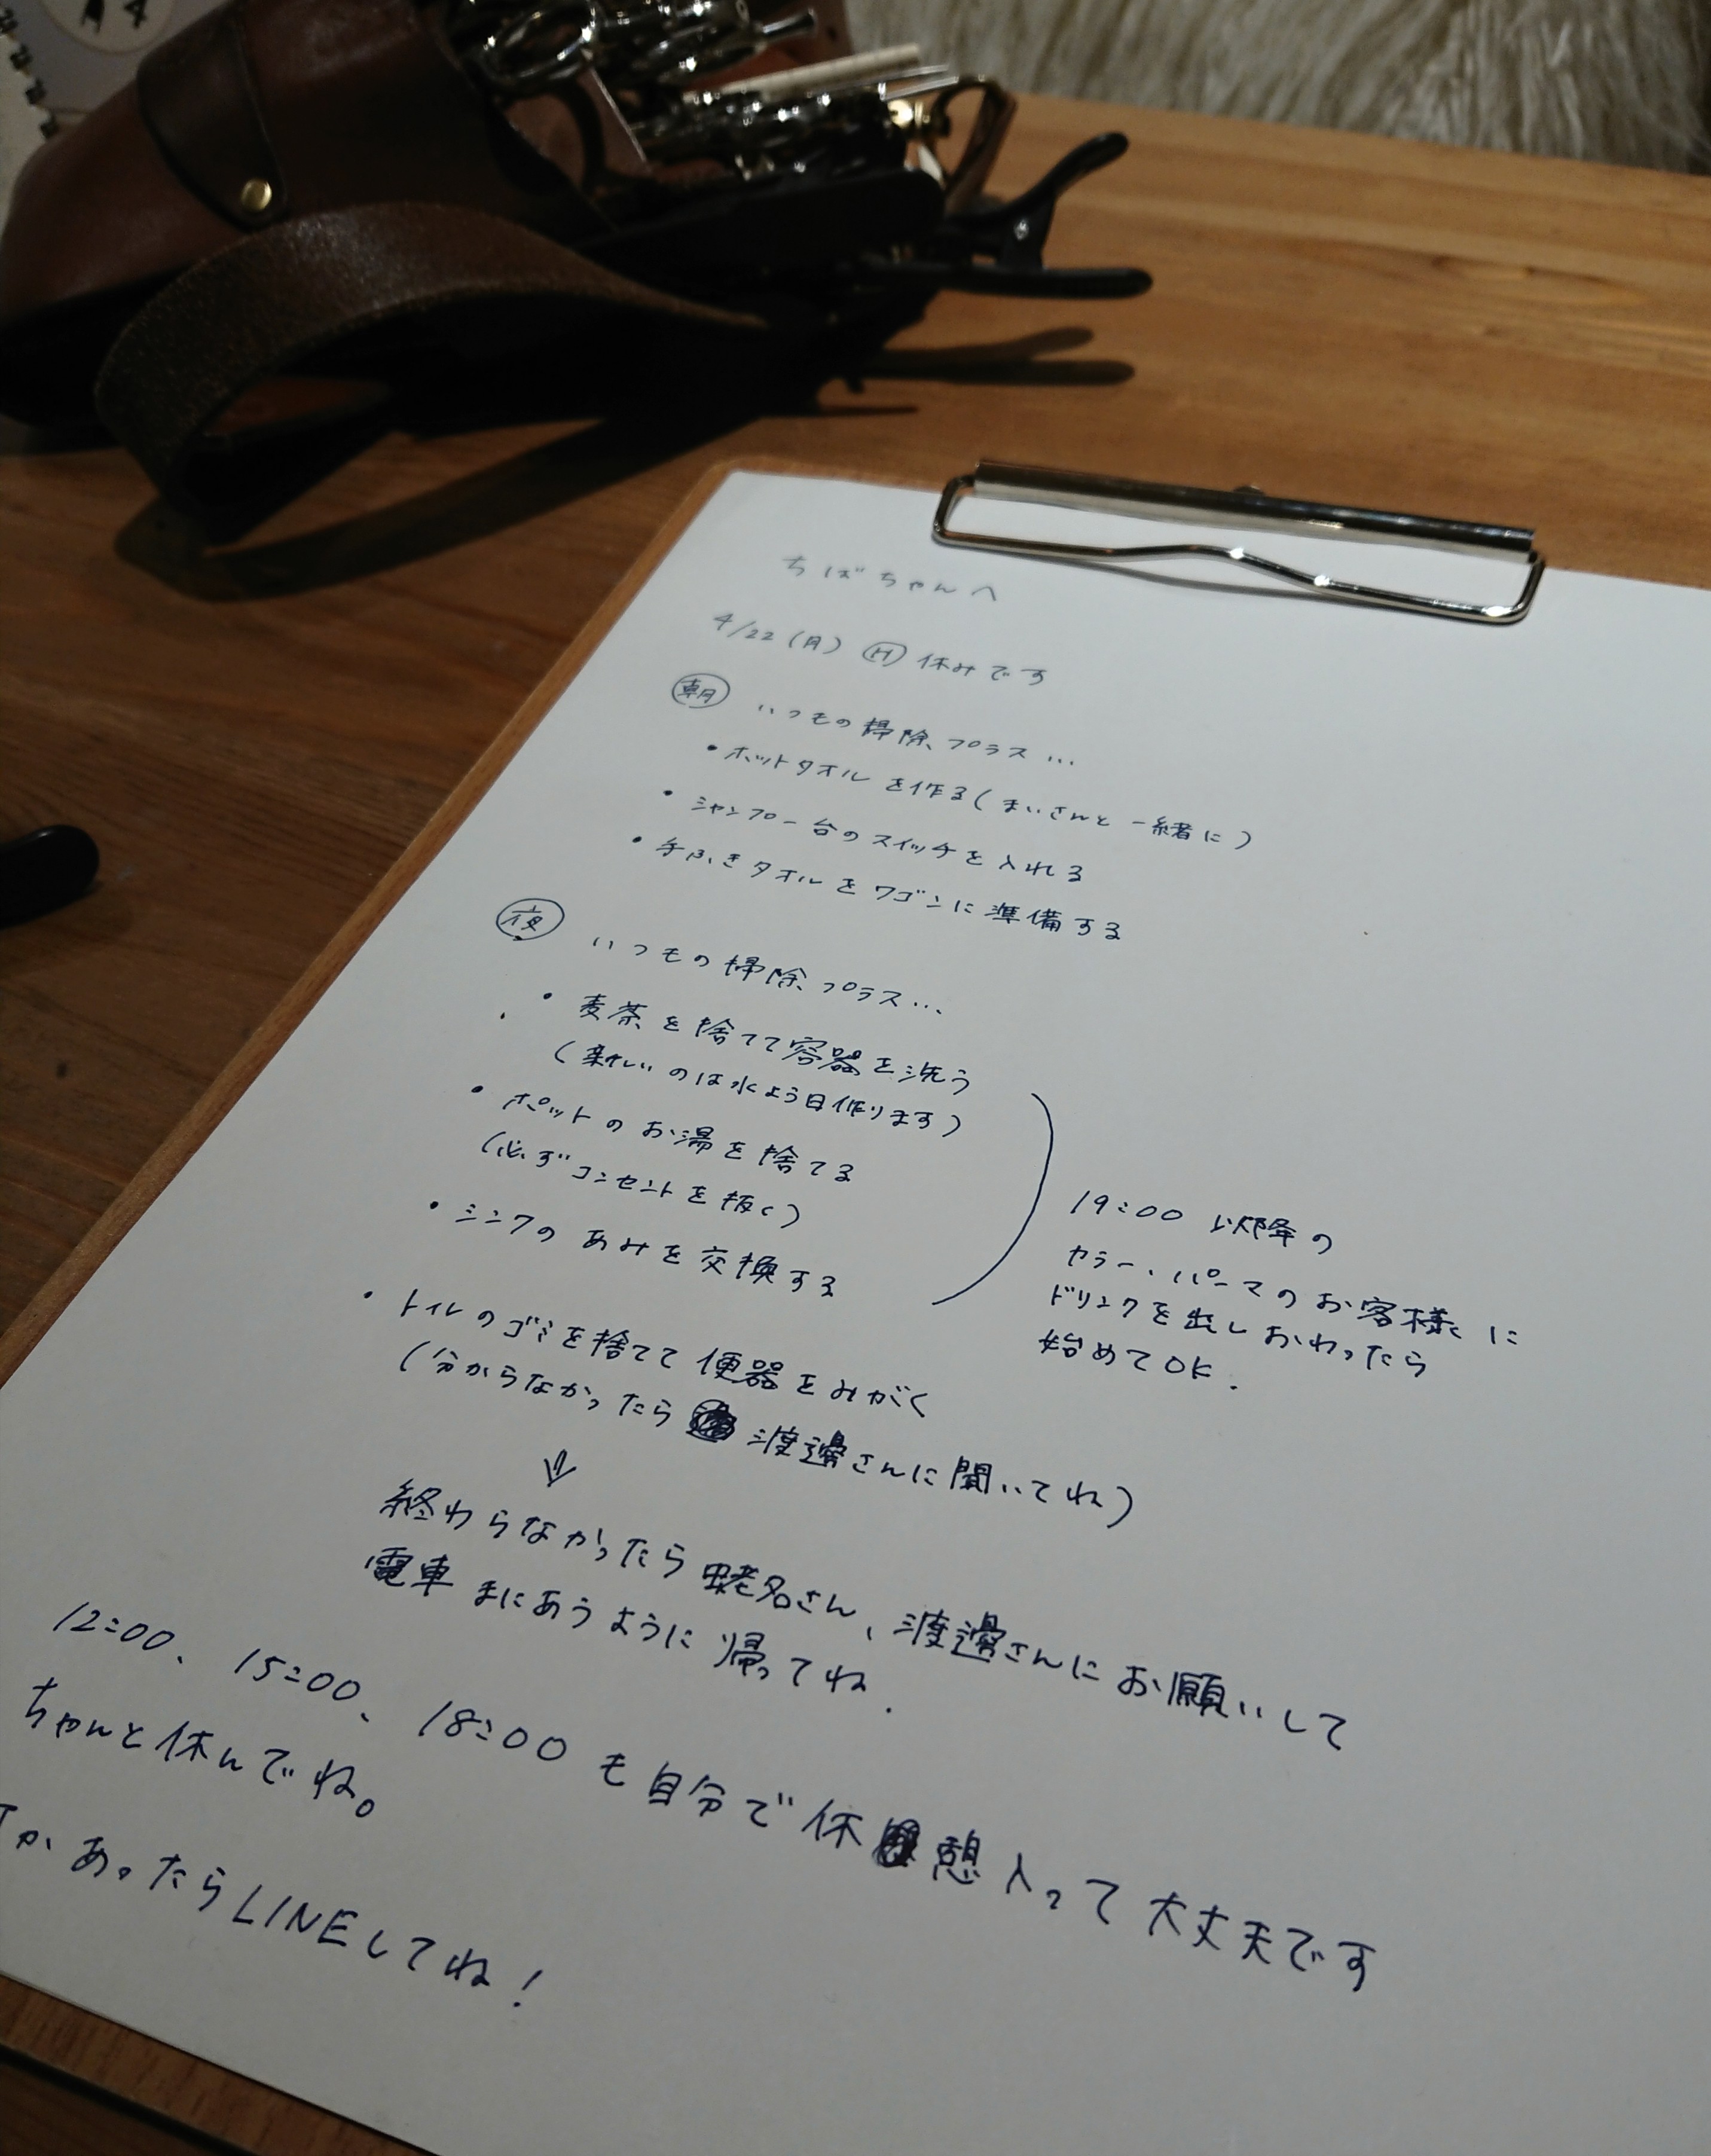 ちばちゃんへ
4/22(月) Ⓗ 休みです
朝 いつもの掃除プラス…
・ホットタオルを作る(まいさんと一緒に)
・シャンプー台のスイッチを入れる
・手ふきタオルをワゴンに準備する
夜 いつもの掃除プラス…
・麦茶を捨てて容器を洗う
(新しいのは水よう日作ります)
・ポットのお湯を捨てる
(必ずコンセントを抜く)
・シンクのあみを交換する
19:00 以降の
カラー、パーマのお客様に
ドリンクを出しおわったら
始めてOK.
・トイレのゴミを捨てて便器をみがく
(分からなかったら 渡邊さんに聞いてね)
⇓
終わらなかったら蛯名さん、渡邊さんにお願いして
電車まにあうように帰ってね.
12:00、15:00、18:00も自分で休憩入って大丈夫です
ちゃんと休んでね。
かあったらLINEしてね!